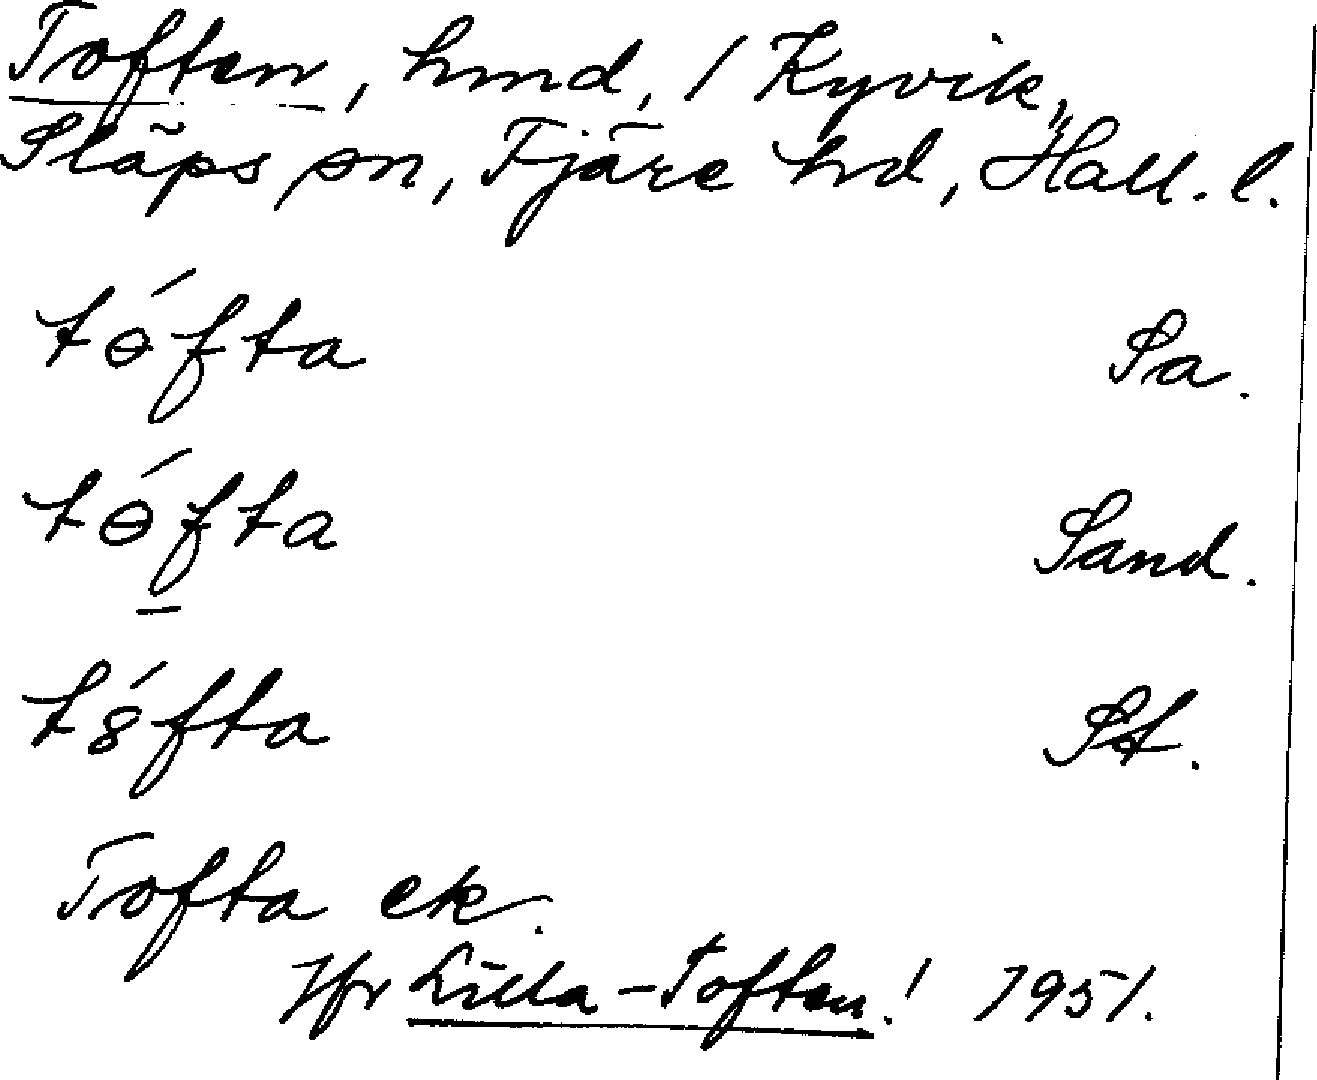 Toften, hmd, 1 Kyvik,
Släps sn, Fjäre hd, Hall. l.
tɵ́fta Sa.
tɵ́fta Sand.
t8́fta St.
Tofta ek.
Jfr Lilla-Toften! 1951.